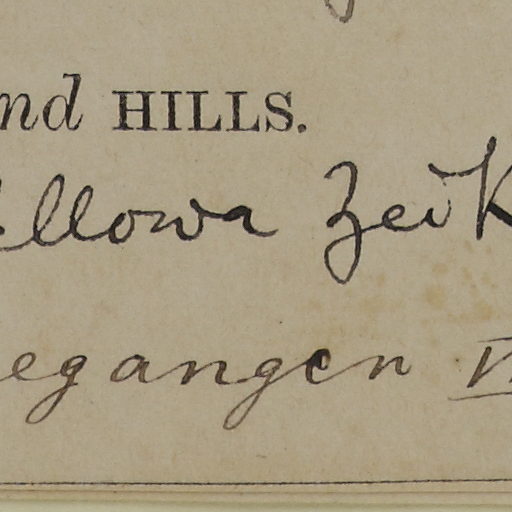 nd HILLS.
llowa Zeik
egangen VI